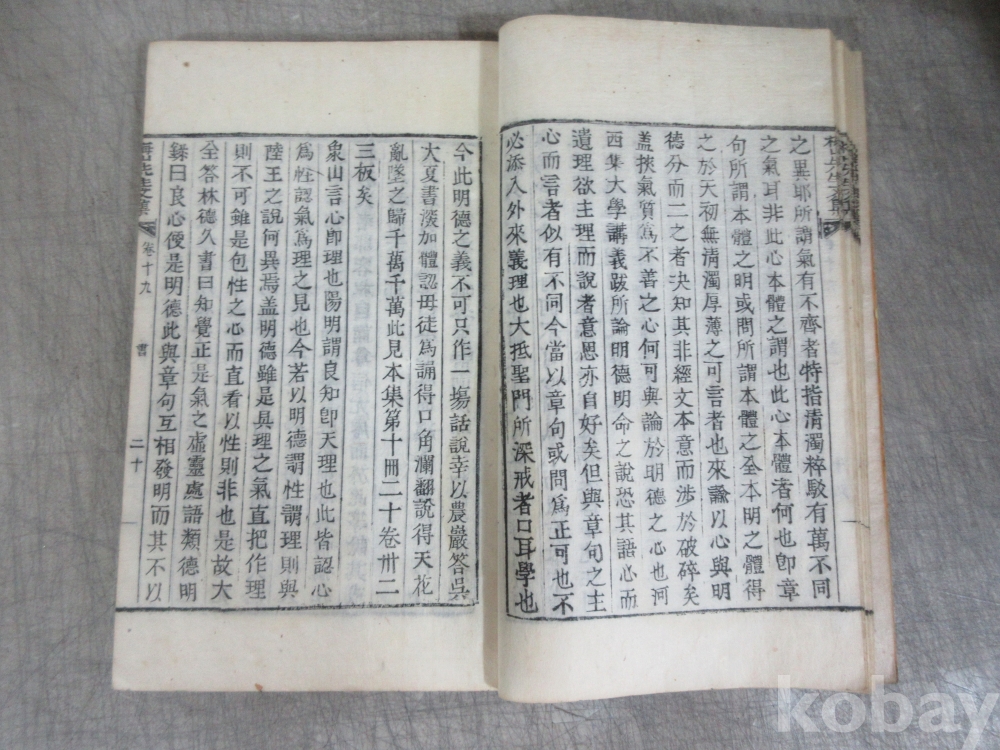 之異耶所謂氣有不齊者特指清濁粹駁有萬不同
之氣耳非此心本體之謂也此心本體者何也卽章
句所謂本體之明或問所謂本體之全本明之體得
之於天初無清濁厚薄之可言者也來諭以心與明
德分而二之者决知其非經文本意而涉於破碎矣
盖挾氣質爲不善之心何可輿論於明德之心也河
西集大學講義跋所論明德明命之說恐其語心而
遺理欲主理而說者意思亦自好矣但與章句之主
心而言者似有不同今當以章句或問爲正可也不
必添入外來義理也大抵聖門所深戒者口耳學也
今此明德之義不可只作一塲話說幸以農巖答吳
大夏書深加體認毋徒爲誦得口角瀾翻說得天花
亂墜之歸千萬千萬此見本集第十冊二十卷卅二
三板矣
象山言心卽理也陽明謂良知卽天理也此皆認心
爲性認氣爲理之見也今若以明德謂性謂理則與
陸王之說何異焉盖明德雖是具理之氣直把作理
則不可雖是包性之心而直看以性則非也是故大
全答林德久書曰知覺正是氣之虛靈處語類德明
錄曰良心便是明德此與章句互相發明而其不以
先生文集
卷十九
書
二十
kobay